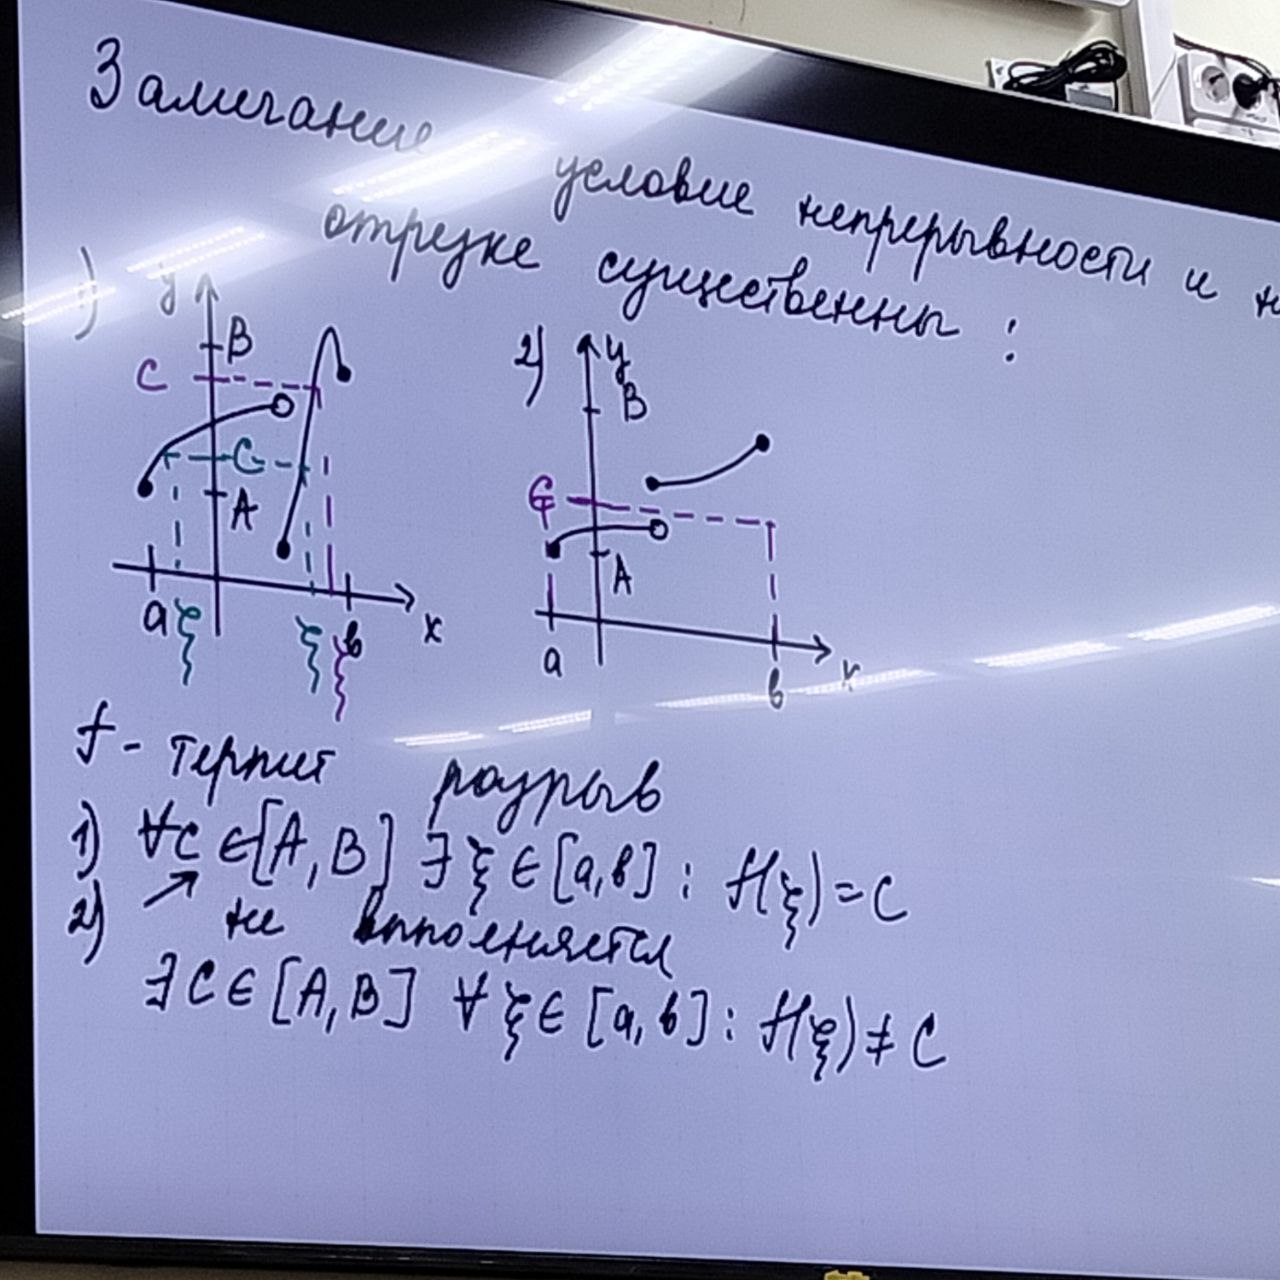 Замечание условие непрерывности и н
отрезке существенны :
1) y B C C A a ξ ξ ξ в x
2) y B C A a в x
f - терпит разрыв
1) ∀c ∈ [A, B] ∃ ξ ∈ [a, в] : f(ξ) = C
2) не выполняется
∃ C ∈ [A, B] ∀ ξ ∈ [a, в] : f(ξ) ≠ C